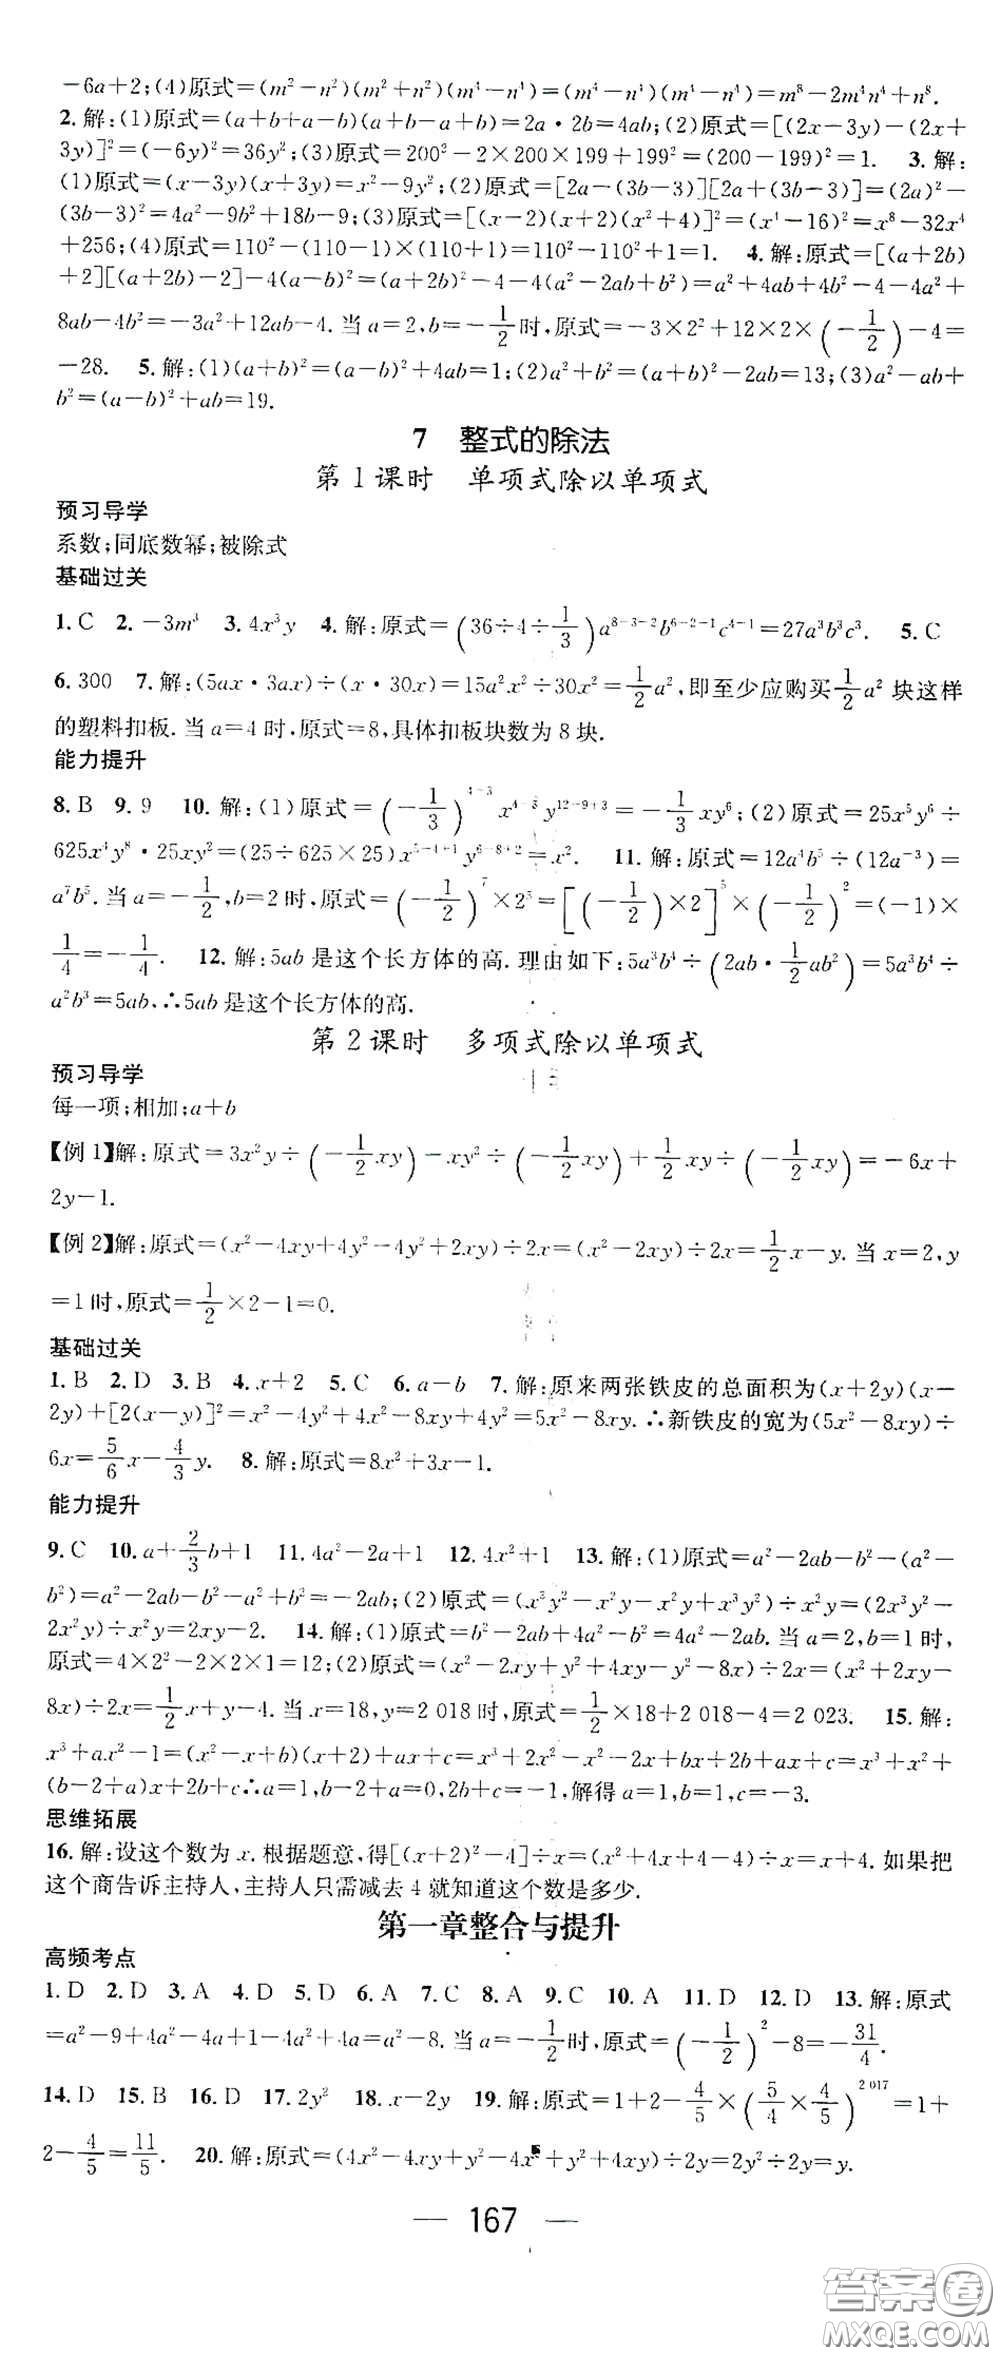 －6a＋2;(4)原式＝(m²－n²)(m²＋n²)(m⁴－n⁴)＝(m⁴－n⁴)(m⁴－n⁴)＝m⁸－2m⁴n⁴＋n⁸.
2.解:(1)原式＝(a＋b＋a－b)(a＋b－a＋b)＝2a·2b＝4ab;(2)原式＝[(2x－3y)－(2x＋
3y)]²＝(－6y)²＝36y²;(3)原式＝200²－2×200×199＋199²＝(200－199)²＝1. 3.解:
(1)原式＝(x－3y)(x＋3y)＝x²－9y²;(2)原式＝[2a－(3b－3)][2a＋(3b－3)]＝(2a)²－
(3b－3)²＝4a²－9b²＋18b－9;(3)原式＝[(x－2)(x＋2)(x²＋4)]²＝(x⁴－16)²＝x⁸－32x⁴
＋256;(4)原式＝110²－(110－1)×(110＋1)＝110²－110²＋1＝1. 4.解:原式＝[(a＋2b)
＋2][(a＋2b)－2]－4(a－b)²＝(a＋2b)²－4－4(a²－2ab＋b²)＝a²＋4ab＋4b²－4－4a²＋
8ab－4b²＝－3a²＋12ab－4.当a＝2,b＝－1/2时,原式＝－3×2²＋12×2×(－1/2)－4＝
－28. 5.解:(1)(a＋b)²＝(a－b)²＋4ab＝1;(2)a²＋b²＝(a＋b)²－2ab＝13;(3)a²－ab＋
b²＝(a－b)²＋ab＝19.
7 整式的除法
第1课时 单项式除以单项式
预习导学
系数;同底数幂;被除式
基础过关
1.C 2.－3m⁴ 3.4x³y 4.解:原式＝(36÷4÷1/3)a⁸⁻³⁻²b⁶⁻²⁻¹c⁴⁻¹＝27a³b³c³. 5.C
6.300 7.解:(5ax·3ax)÷(x·30x)＝15a²x²÷30x²＝1/2a²,即至少应购买1/2a²块这样
的塑料扣板.当a＝4时,原式＝8,具体扣板块数为8块.
能力提升
8.B 9.9 10.解:(1)原式＝(－1/3)⁴⁻³x⁴⁻³y¹²⁻⁹⁺³＝－1/3xy⁶;(2)原式＝25x⁵y⁶÷
625x⁴y⁸·25xy²＝(25÷625×25)x⁵⁻⁴⁺¹y⁶⁻⁸⁺²＝x². 11.解:原式＝12a⁴b⁵÷(12a⁻³)＝
a⁷b⁵.当a＝－1/2,b＝2时,原式＝(－1/2)⁷×2⁵＝[(－1/2)×2]⁵×(－1/2)²＝(－1)×
1/4＝－1/4. 12.解:5ab是这个长方体的高.理由如下:5a³b⁴÷(2ab·1/2ab²)＝5a³b⁴÷
a²b³＝5ab,∴5ab是这个长方体的高.
第2课时 多项式除以单项式
预习导学
每一项;相加;a＋b
【例1】解:原式＝3x²y÷(－1/2xy)－xy²÷(－1/2xy)＋1/2xy÷(－1/2xy)＝－6x＋
2y－1.
【例2】解:原式＝(x²－4xy＋4y²－4y²＋2xy)÷2x＝(x²－2xy)÷2x＝1/2x－y.当x＝2,y
＝1时,原式＝1/2×2－1＝0.
基础过关
1.B 2.D 3.B 4.x＋2 5.C 6.a－b 7.解:原来两张铁皮的总面积为(x＋2y)(x－
2y)＋[2(x－y)]²＝x²－4y²＋4x²－8xy＋4y²＝5x²－8xy.∴新铁皮的宽为(5x²－8xy)÷
6x＝5/6x－4/3y. 8.解:原式＝8x²＋3x－1.
能力提升
9.C 10.a＋2/3b＋1 11.4a²－2a＋1 12.4x²＋1 13.解:(1)原式＝a²－2ab－b²－(a²－
b²)＝a²－2ab－b²－a²＋b²＝－2ab;(2)原式＝(x³y²－x²y－x²y＋x³y²)÷x²y＝(2x³y²－
2x²y)÷x²y＝2xy－2. 14.解:(1)原式＝b²－2ab＋4a²－b²＝4a²－2ab.当a＝2,b＝1时,
原式＝4×2²－2×2×1＝12;(2)原式＝(x²－2xy＋y²＋4xy－y²－8x)÷2x＝(x²＋2xy－
8x)÷2x＝1/2x＋y－4.当x＝18,y＝2 018时,原式＝1/2×18＋2 018－4＝2 023. 15.解:
x³＋ax²－1＝(x²－x＋b)(x＋2)＋ax＋c＝x³＋2x²－x²－2x＋bx＋2b＋ax＋c＝x³＋x²＋
(b－2＋a)x＋2b＋c∴a＝1,b－2＋a＝0,2b＋c＝－1,解得a＝1,b＝1,c＝－3.
思维拓展
16.解:设这个数为x.根据题意,得[(x＋2)²－4]÷x＝(x²＋4x＋4－4)÷x＝x＋4.如果把
这个商告诉主持人,主持人只需减去4就知道这个数是多少.
第一章整合与提升
高频考点
1.D 2.D 3.A 4.D 5.D 6.A 7.C 8.A 9.C 10.A 11.D 12.D 13.解:原式
＝a²－9＋4a²－4a＋1－4a²＋4a＝a²－8.当a＝－1/2时,原式＝(－1/2)²－8＝－31/4.
14.D 15.B 16.D 17.2y² 18.x－2y 19.解:原式＝1＋2－4/5×(5/4×4/5)²⁰¹⁷＝1＋
2－4/5＝11/5. 20.解:原式＝(4x²－4xy＋y²－4x²＋y²＋4xy)÷2y＝2y²÷2y＝y.
— 167 —
答案圈
MXQE.COM